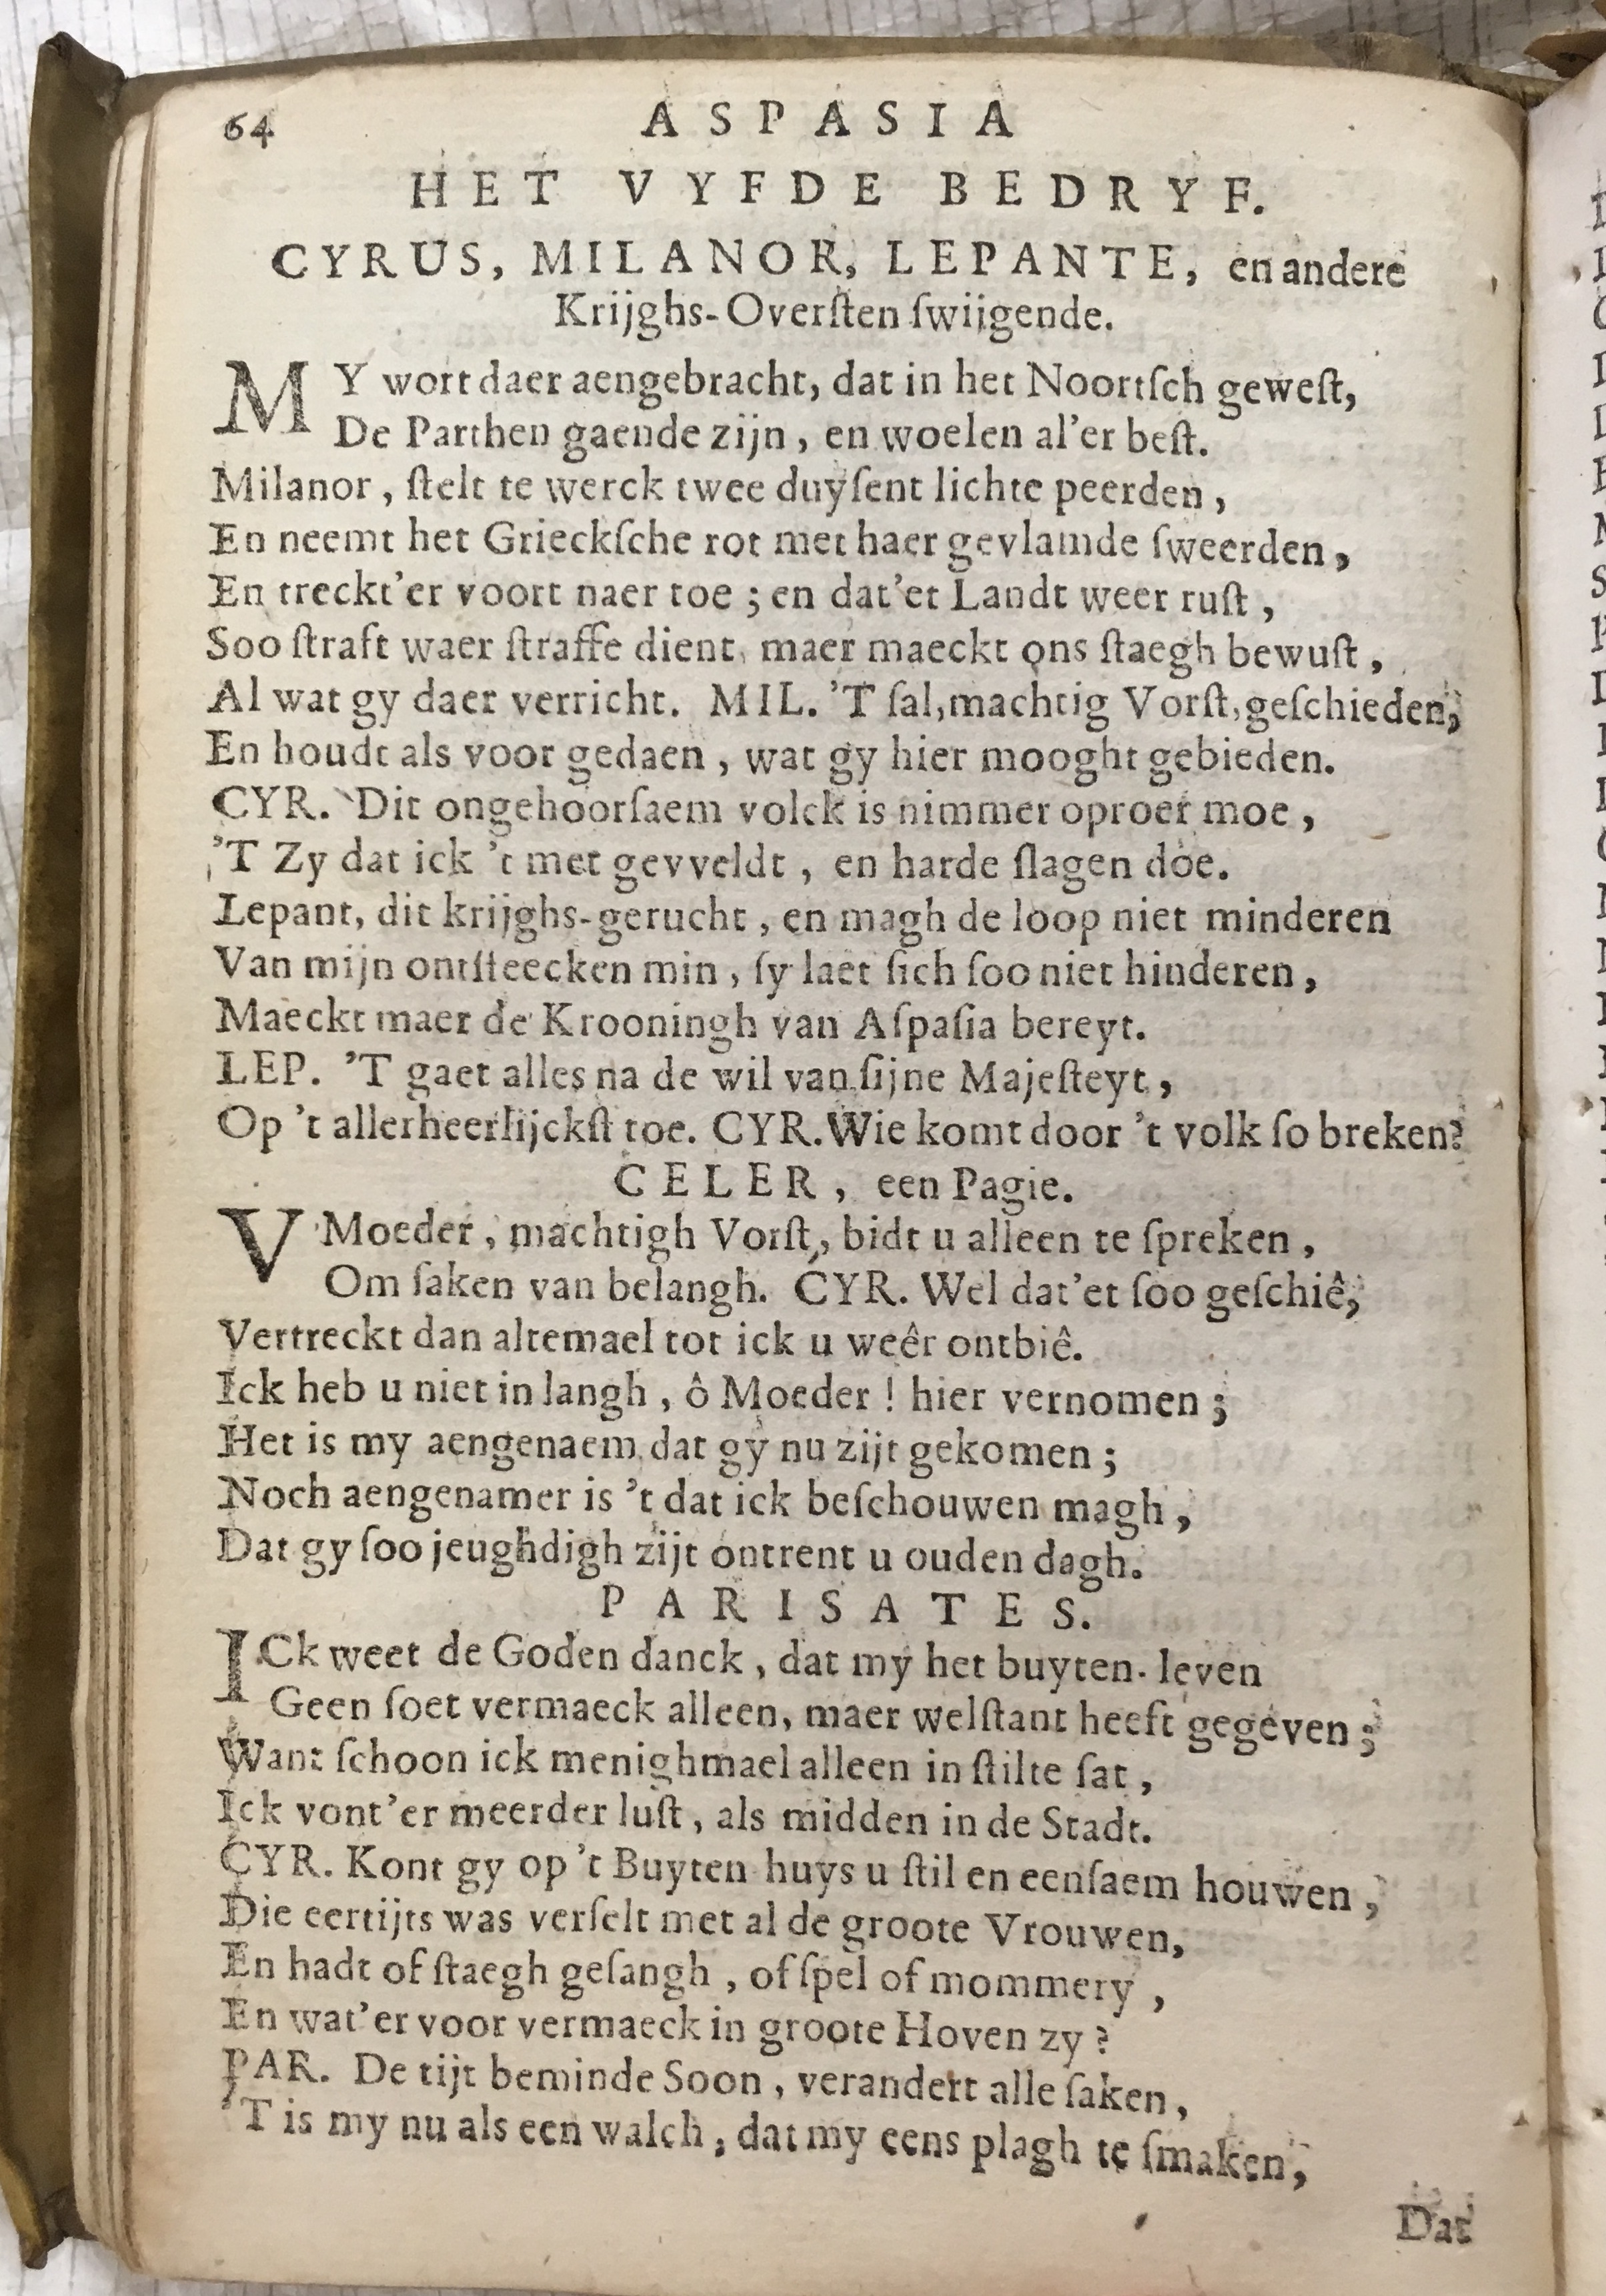 64 ASPASIA
HET VYFDE BEDRYF.
CYRUS, MILANOR, LEPANTE, en andere
Krijghs-Overſten ſwijgende.
MY wort daer aengebracht, dat in het Noortſch geweſt,
De Parthen gaende zijn, en woelen al'er beſt.
Milanor, ſtelt te werck twee duyſent lichte peerden,
En neemt het Grieckſche rot met haer gevlamde ſweerden,
En treckt'er voort naer toe; en dat'et Landt weer ruſt,
Soo ſtraft waer ſtraffe dient, maer maeckt ons ſtaegh bewuſt,
Al wat gy daer verricht. MIL. 'T ſal, machtig Vorſt, geſchieden,
En houdt als voor gedaen, wat gy hier mooght gebieden.
CYR. Dit ongehoorſaem volck is nimmer oproer moe,
'T Zy dat ick 't met gevveldt, en harde ſlagen doe.
Lepant, dit krijghs-gerucht, en magh de loop niet minderen
Van mijn ontſteecken min, ſy laet ſich ſoo niet hinderen,
Maeckt maer de Krooningh van Aſpaſia bereyt.
LEP. 'T gaet alles na de wil van ſijne Majeſteyt,
Op 't allerheerlijckſt toe. CYR. Wie komt door 't volk ſo breken?
CELER, een Pagie.
V Moeder, machtigh Vorſt, bidt u alleen te ſpreken,
Om ſaken van belangh. CYR. Wel dat'et ſoo geſchiê,
Vertreckt dan altemael tot ick u weêr ontbiê.
Ick heb u niet in langh, ô Moeder! hier vernomen;
Het is my aengenaem dat gy nu zijt gekomen;
Noch aengenamer is 't dat ick beſchouwen magh,
Dat gy ſoo jeughdigh zijt ontrent u ouden dagh.
PARISATES.
ICk weet de Goden danck, dat my het buyten-leven
Geen ſoet vermaeck alleen, maer welſtant heeft gegeven;
Want ſchoon ick menighmael alleen in ſtilte ſat,
Ick vont'er meerder luſt, als midden in de Stadt.
CYR. Kont gy op 't Buyten huys u ſtil en eenſaem houwen,
Die eertijts was verſelt met al de groote Vrouwen,
En hadt of ſtaegh geſangh, of ſpel of mommery,
En wat'er voor vermaeck in groote Hoven zy?
PAR. De tijt beminde Soon, verandert alle ſaken,
'T is my nu als een walch, dat my eens plagh te ſmaken,
Dat